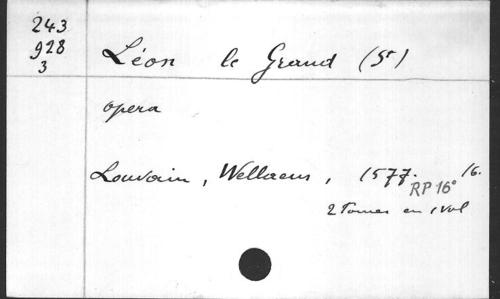 243
928
3
Léon le Grand (St)
opera
Louvain, Wellaeus, 1577. 16.
RP 16°
2 Tomes en 1 vol